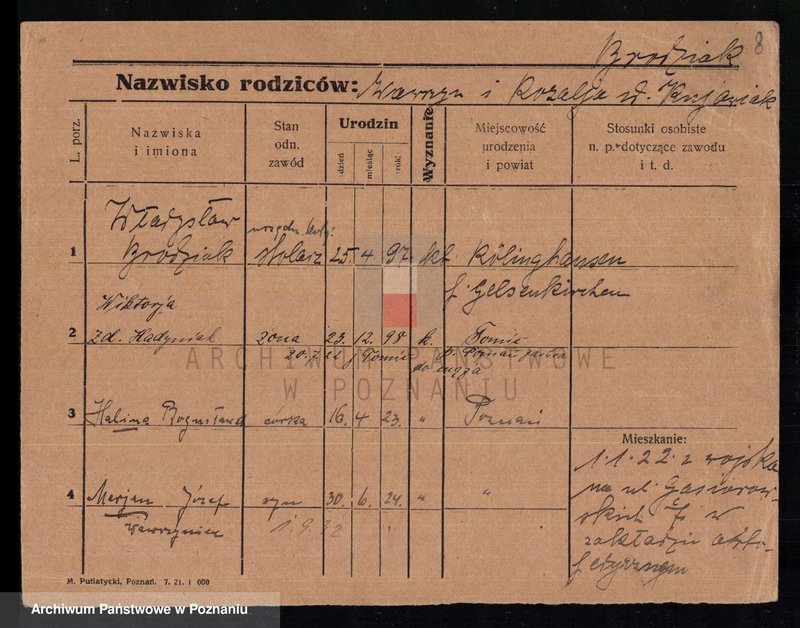 8
Brodziak
Nazwisko rodziców: Wawrzyn i Rozalja z d. Kujawiak
L. porz.
Nazwiska i imiona
Stan odn. zawód
Urodzin
dzień
miesiąc
rok
Wyznanie
Miejscowość urodzenia i powiat
Stosunki osobiste n. p. dotyczące zawodu i t. d.
Władysław
1 Brodziak stolarz 25. 4. 97. kat Rölinghausen
p. Gelsenkirchen
Wiktorja
2 zd. Radyniak żona 23. 12. 98 k.
20.7.22
3 Halina Bogusława córka 16. 4 23. " Poznań
4 Marjan Józef syn 30. 6. 24. " "
Wawrzyniec 1.9.32
Mieszkanie:
1.1.22 z wojska
na ul. Gąsiorow-
skich 7 w
zakładzie orto-
pedycznym
M. Putiatycki, Poznań. 7. 21. 1 000
ARCHIWUM PAŃSTWOWE
W POZNANIU
Archiwum Państwowe w Poznaniu